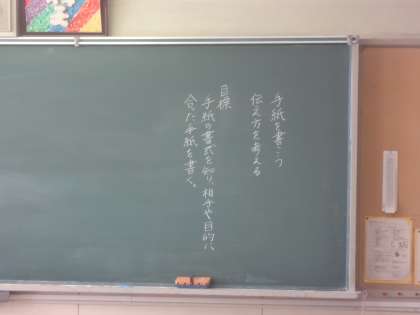 手紙を書こう
伝え方を考える
目標
手紙の書式を知り、相手や目的に
合った手紙を書く。